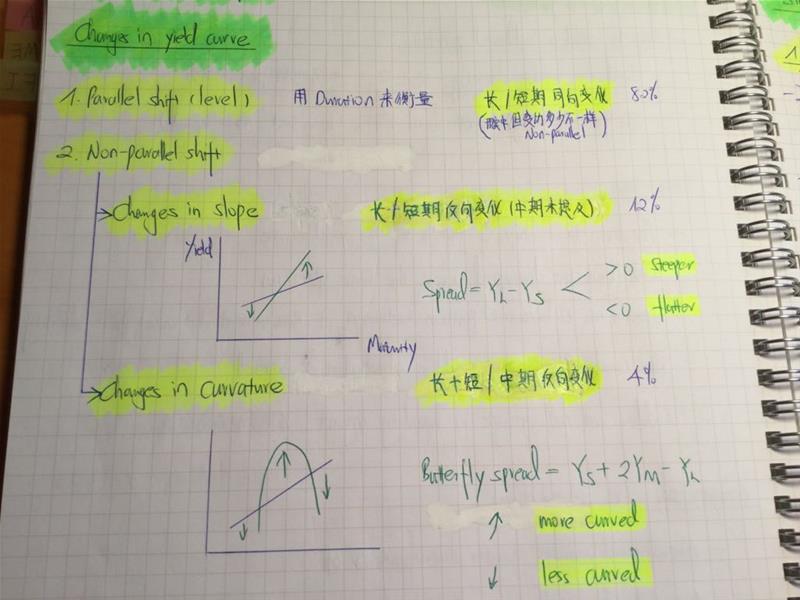 Changes in yield curve
1. Parallel shift (level) 用 Duration 来衡量 长/短期 同向变化 80%
但变的多少不一样
Non-parallel)
2. Non-parallel shift
Changes in slope 长/短期反向变化(中期未提及) 12%
Yield
Spread = YL - YS < >0 steeper
<0 flatter
Maturity
Changes in curvature 长+短/中期反向变化 4%
Butterfly spread = YS + 2YM - YL
↑ more curved
↓ less curved